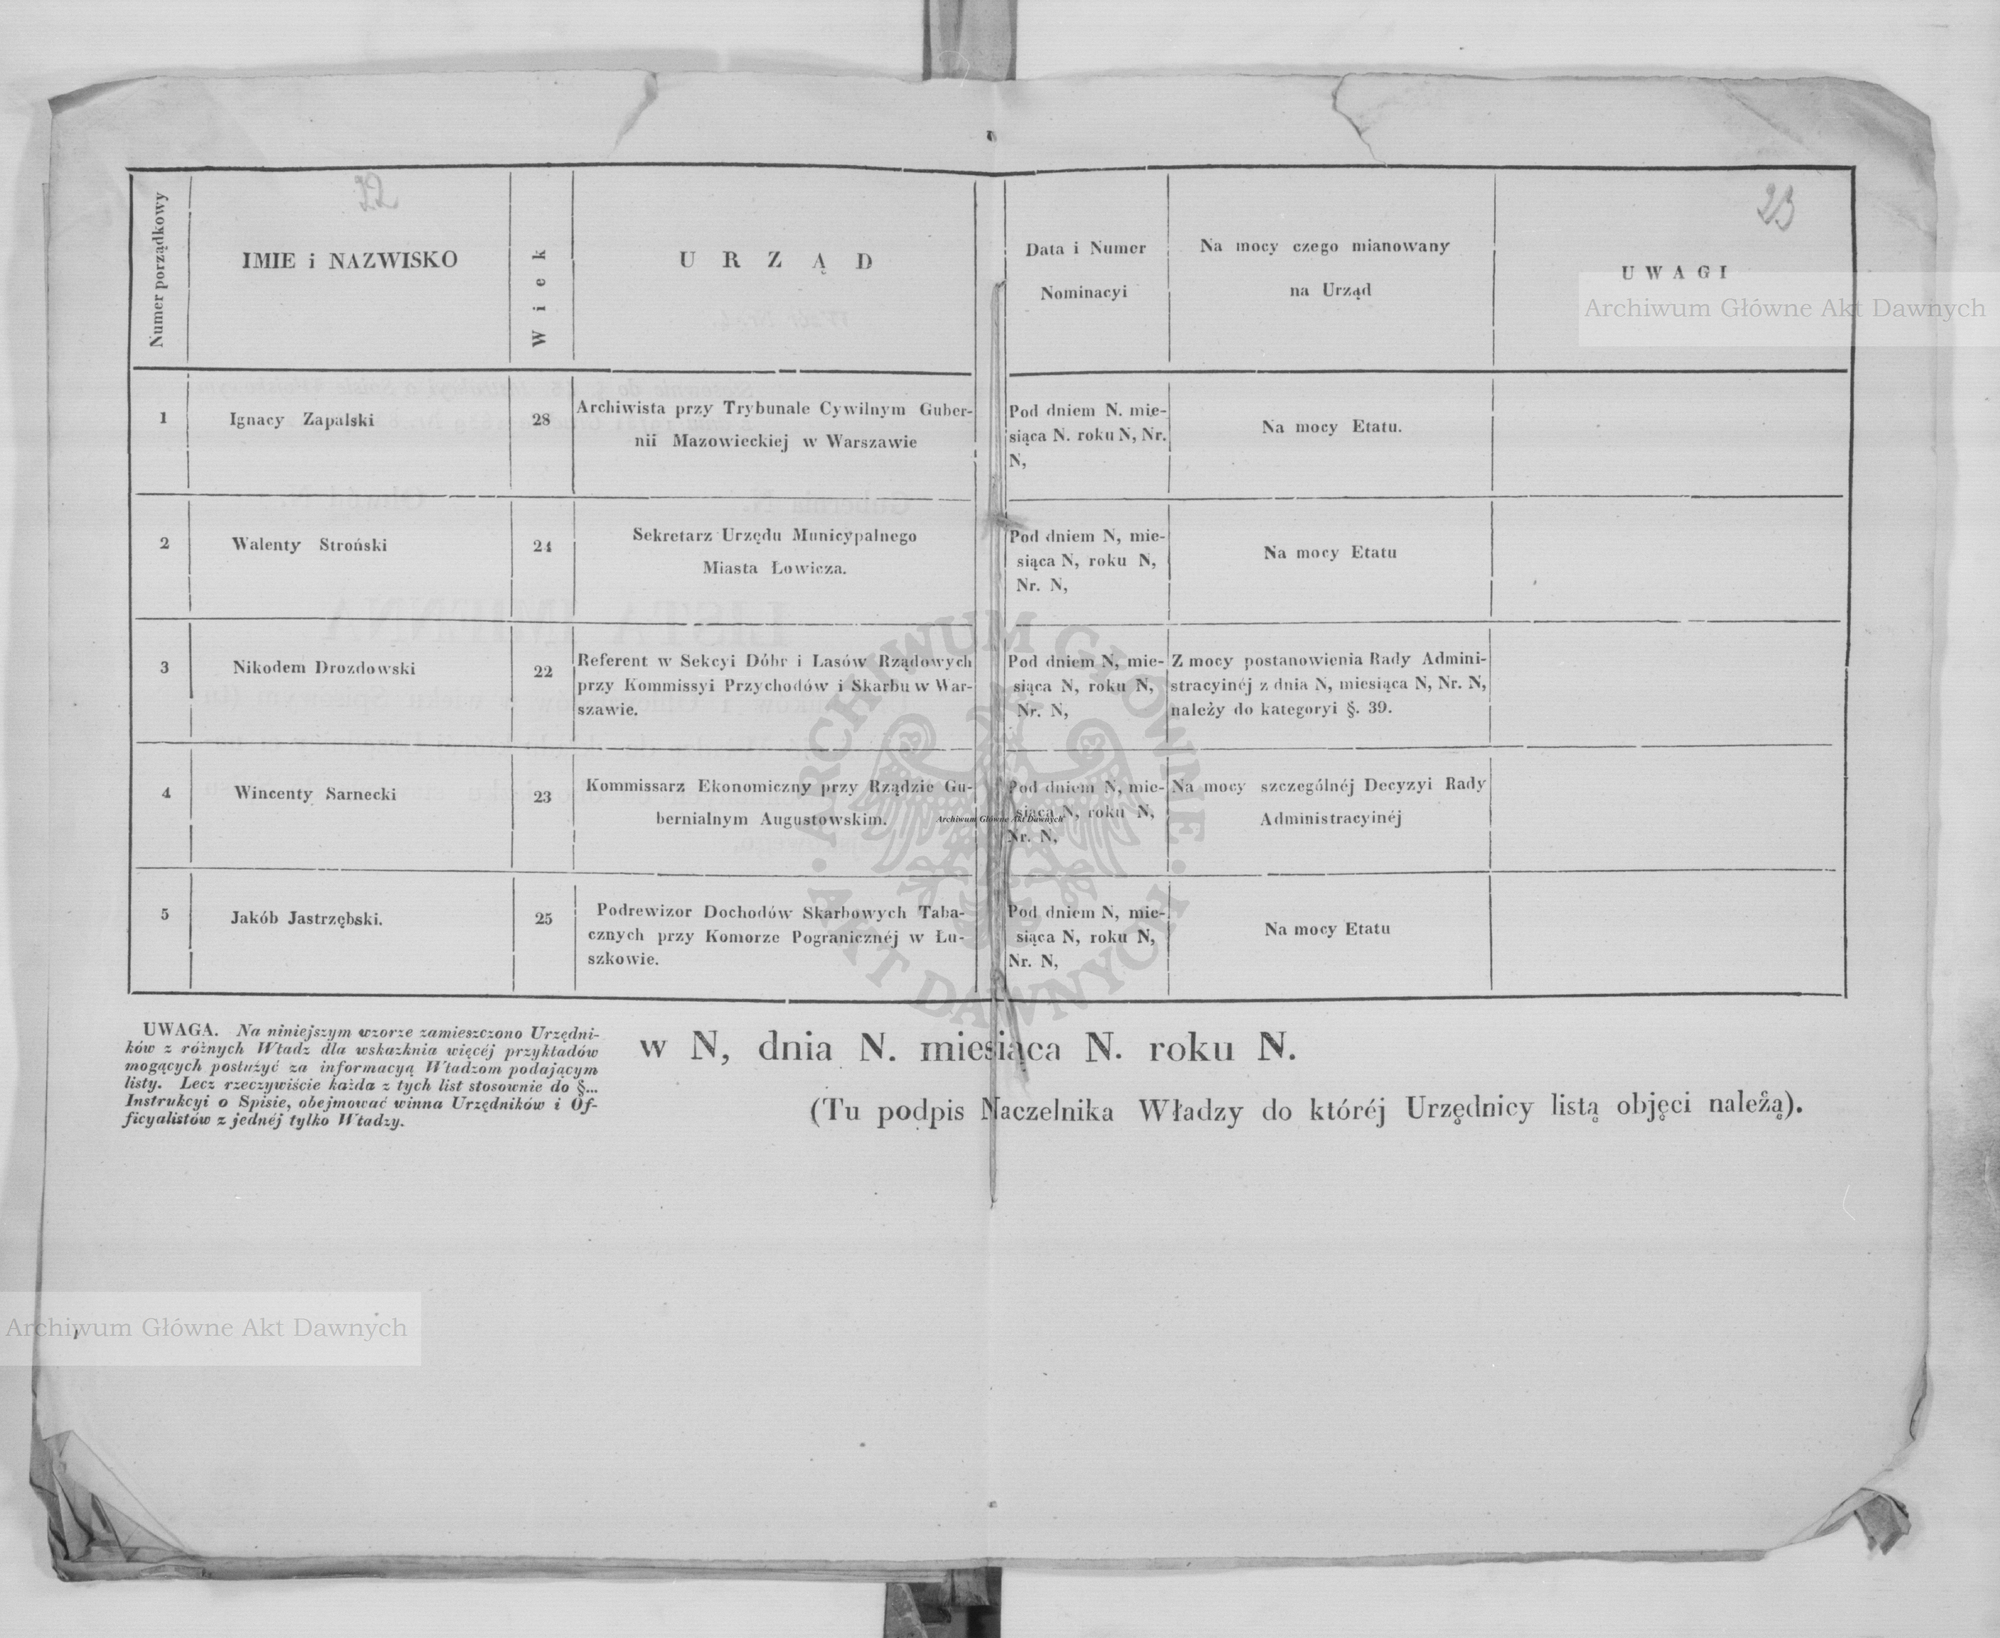 22
23
Numer porządkowy
IMIE i NAZWISKO
Wiek
URZĄD
Data i Numer
Nominacyi
Na mocy czego mianowany
na Urząd
UWAGI
1
Ignacy Zapalski
28
Archiwista przy Trybunale Cywilnym Guber-
nii Mazowieckiej w Warszawie
Pod dniem N. mie-
siąca N. roku N, Nr.
N,
Na mocy Etatu.
2
Walenty Stroński
24
Sekretarz Urzędu Municypalnego
Miasta Łowicza.
Pod dniem N, mie-
siąca N, roku N,
Nr. N,
Na mocy Etatu
3
Nikodem Drozdowski
22
Referent w Sekcyi Dóbr i Lasów Rządowych
przy Kommissyi Przychodów i Skarbu w War-
szawie.
Pod dniem N, mie-
siąca N, roku N,
Nr. N,
Z mocy postanowienia Rady Admini-
stracyinéj z dnia N, miesiąca N, Nr. N,
należy do kategoryi §. 39.
4
Wincenty Sarnecki
23
Kommissarz Ekonomiczny przy Rządzie Gu-
bernialnym Augustowskim.
Pod dniem N, mie-
siąca N, roku N,
Nr. N,
Na mocy szczególnéj Decyzyi Rady
Administracyinéj
5
Jakób Jastrzębski.
25
Podrewizor Dochodów Skarbowych Taba-
cznych przy Komorze Pogranicznéj w Łu-
szkowie.
Pod dniem N, mie-
siąca N, roku N,
Nr. N,
Na mocy Etatu
UWAGA. Na niniejszym wzorze zamieszczono Urzędni-
ków z różnych Władz dla wskazknia więcéj przykładów
mogących posłużyć za informacyą Władzom podającym
listy. Lecz rzeczywiście każda z tych list stosownie do §...
Instrukcyi o Spisie, obejmować winna Urzędników i Of-
ficyalistów z jednéj tylko Władzy.
w N, dnia N. miesiąca N. roku N.
(Tu podpis Naczelnika Władzy do któréj Urzędnicy listą objęci należą).
Archiwum Główne Akt Dawnych
Archiwum Główne Akt Dawnych
Archiwum Główne Akt Dawnych
ARCHIWUM GŁÓWNE · AKT DAWNYCH ·